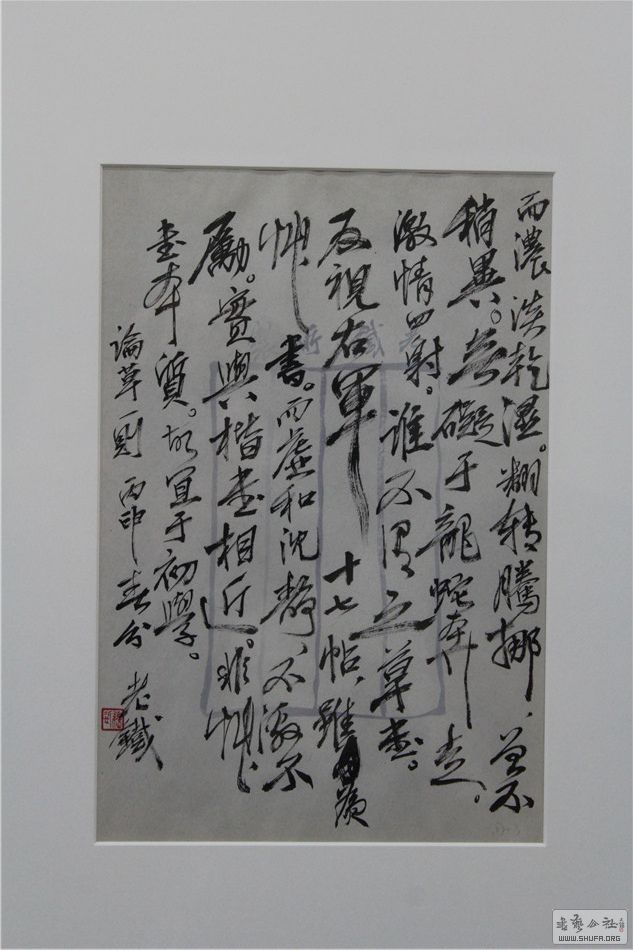 而濃淡乾濕。翻轉騰挪、曾不
稍異。無礙于龍蛇奔走。
激情四射。誰不謂之草書。
反視右軍十七帖、雖
艸書。而虛和沈静、不激不
厲。實與楷書相近。非艸
書本質。故宜于初學。
論草一則 丙申春分 老鐵
書藝公社
WWW.SHUFA.ORG